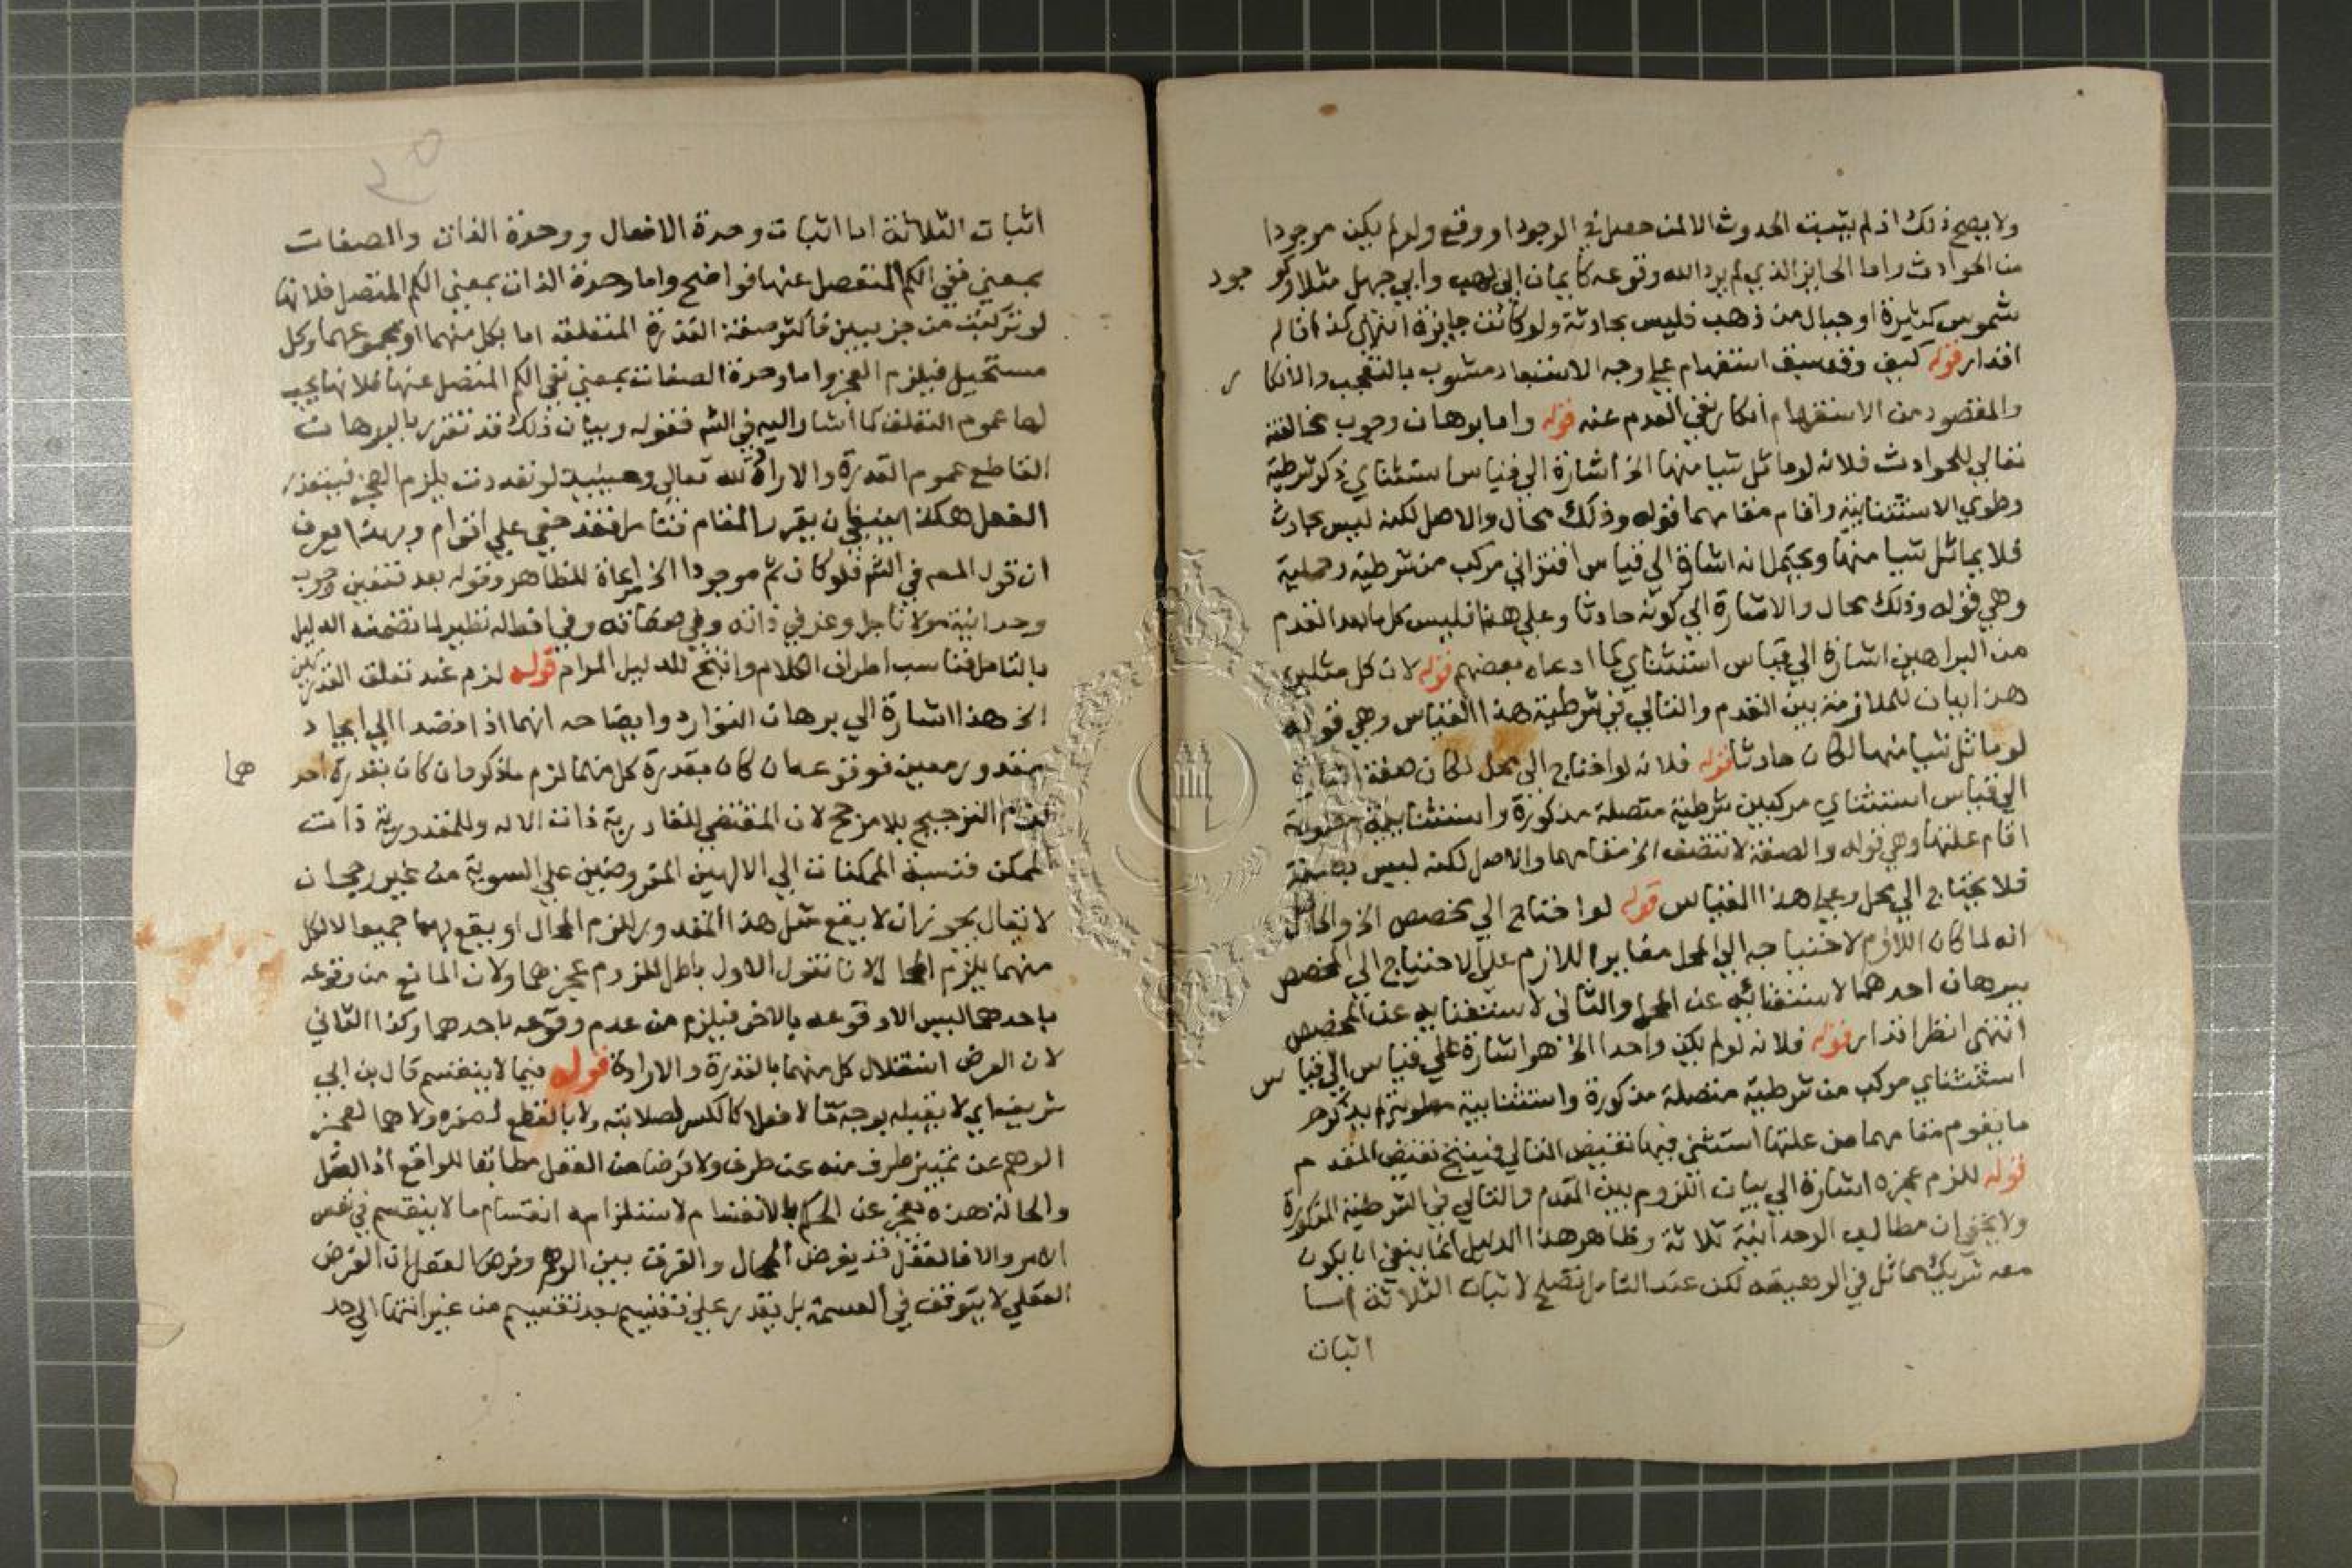 ولا يصح ذلك اذ لم يثبت الحدوث الا لمن حصل في الوجود او وقع ولو لم يكن موجودا
من الحوادث واما الجايز الذي لم يرد الله وقوعه كايمان ابي لهب وابي جهل مثلا وكو جود
شموس كثيرة او جبال من ذهب فليس بحادثة ولو كانت جايزة انتهى كذا قاله
اقدار قوله كيف وقد سبق استفهام علي وجه الاستبعاد مشوب بالتعجب والانكا ر
والمقصود من الاستفهام انكار نفي القدم عنه قوله واما برهان وجوب مخالفته
تعالي للحوادث فلانه لو ماثل شيا منها الخ اشارة الي قياس استثناي ذكر شرطية
وطوي الاستثنايية واقام مقامهما قوله وذلك محال والاصل لكنه ليس بحادث
فلا يماثل شيا منها ويحتمل انه اشارة الي قياس اقتراني مركب من شرطية وحملية
وهي قوله وذلك محال والاشارة الي كونه حادثا وعلي هذا فليس كل ما بعد القدم
من البراهين اشارة الي قياس استثناي كما ادعاه بعضهم قوله لان كل مثلين
هذا بيان للملازمة بين المقدم والتالي في شرطية هذا القياس وهي قوله
لو ماثل شيا منها لكان حادثا قوله فلانه لو احتاج الي محل لكان صفة اشارة
الي قياس استثناي مركبين شرطية متصلة مذكورة واستثنايية مطوية
اقام علتها وهي قوله والصفة لا تتصف الخ مقامهما والاصل لكنه ليس بصفة
فلا يحتاج الي محل وعلي هذا القياس قوله لو احتاج الي مخصص الخ والحاصل
انه لما كان اللازم لاحتياجه الي المحل مغايرا اللازم علي الاحتياج الي المخصص
ببرهان احدهما لاستغنائه عن المحل والثاني لاستغنايه عن المخصص
انتهى انظر اقدار قوله فلانه لو لم يكن واحدا الخ هو اشارة علي قياس الي قيا س
استثناي مركب من شرطية متصلة مذكورة واستثنايية مطوية لم يذكر
ما يقوم مقامهما من علتها استثنى فيها نقيض التالي فينتج نقيض المقدم
قوله للزم عجزه اشارة الي بيان اللزوم بين المقدم والتالي في الشرطية المذكورة
ولا يخفي ان مطالب الوحدانية ثلاثة وظاهر هذا الدليل انما ينفي ان يكون
معه شريك مماثل في الوهيته لكن عند التامل تصلح لاثبات الثلاثة اما
اثبات
اثبات الثلاثة اما اثبات وحدة الافعال ووحدة الذات والصفات
بمعني نفي الكم المنفصل عنها فواضح واما وحدة الذات بمعني الكم المتصل فلانها
لو تركبت من جزيين فأكثر صفة القدرة المتعلقة اما بكل منهما او بمجموعهما وكل
مستحيل فيلزم العجز واما وحدة الصفات بمعني نفي الكم المتصل عنها فلانها يجب
لها عموم التعلق كما اشار اليه في الشم فقوله وبيان ذلك قد تقرر بالبرهان
القاطع عموم القدرة والارادة لله تعالي وحينيذ لو تعددت يلزم العجز فيتعذر
الفعل هكذا ينبغي ان يقرر المقام فتامل فقد خفي علي اقوام وبهذا يعرف
ان قول المصـ في الشم فلو كان ثم موجودا الخ مراعاة للظاهر وقوله بعد فتعين وجوب
وحدانية مولانا جل وعز في ذاته وفي صفاته وفي افعاله نظير لما تضمنه الدليل
بالتامل فتناسب اطراف الكلام وانتج الدليل المرام قوله لزم عند تعلق القدرتين
الخ هذا اشارة الي برهان التوارد وايضاحه انهما اذا قصدا الي ايجاد
مقدور معين فوقوعه ان كان بقدرة كل منهما لزم ما ذكر وان كان بقدرة احد هما
لزم الترجيح بلا مرجح لان المقتضي للقادرية ذات الاله وللمقدورية ذات
الممكن فنسبة الممكنات الي الالهين المفروضين علي السوية من غير رجحان
لا يقال يجوز ان لا يقع مثل هذا المقدور للزوم المحال او يقع بهما جميعا لا لكل
منهما يلزم المحال لانا نقول الاول باطل للزوم عجزهما ولان المانع من وقوعه
باحدهما ليس الا وقوعه بالاخر فيلزم من عدم وقوعه باحدهما وكذا الثاني
لان الفرض استقلال كل منهما بالقدرة والارادة قوله فيما لا ينقسم قال بن ابي
شريف اي لا يقبله بوجه ما لا فعلا كالكسر لصلابته ولا بالقطع لصغره ولا هما لعجز
الوهم عن تمييز طرف منه عن طرف ولا فرضا من العقل مطابقا للواقع اذ العقل
والحالة هذه يعجز عن الحكم بالانقسام لاستلزامه انقسام ما لا ينقسم في نفس
الامر والا فالعقل قد يفرض المحال والفرق بين الوهم وفرض العقل ان الفرض
العقلي لا يتوقف في القسمة بل يقدر علي تقسيم بعد تقسيم من غير انتها الي حد